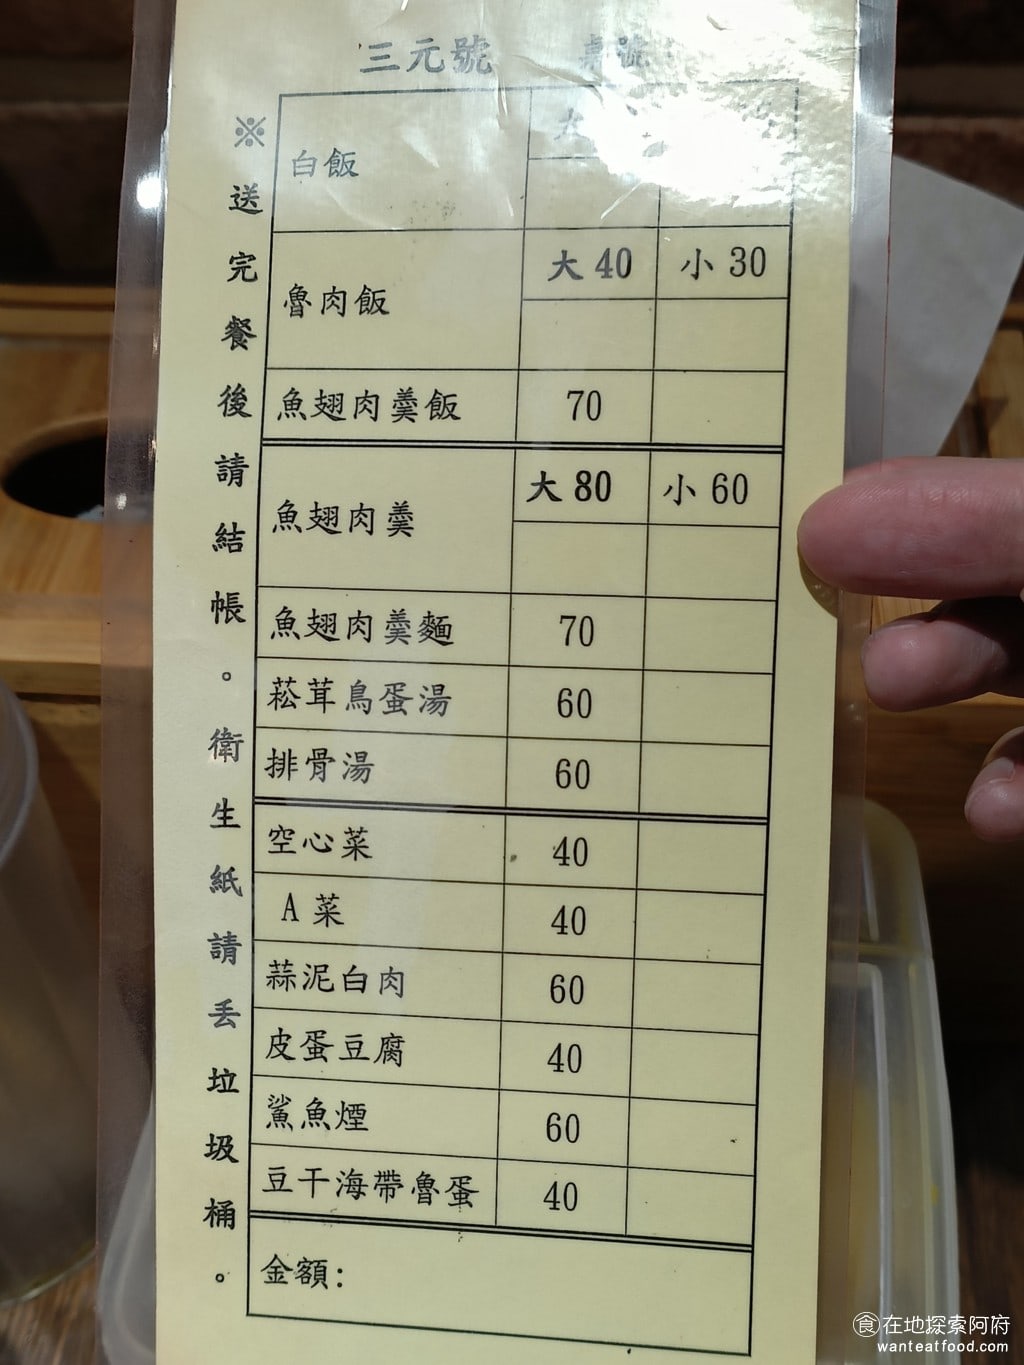 三元號 桌號
白飯 大
魯肉飯 大 40 小 30
魚翅肉羹飯 70
魚翅肉羹 大 80 小 60
魚翅肉羹麵 70
菘茸鳥蛋湯 60
排骨湯 60
空心菜 40
A 菜 40
蒜泥白肉 60
皮蛋豆腐 40
鯊魚煙 60
豆干海帶魯蛋 40
金額:
※送完餐後請結帳。衛生紙請丟垃圾桶。
食在地探索阿府
wanteatfood.com